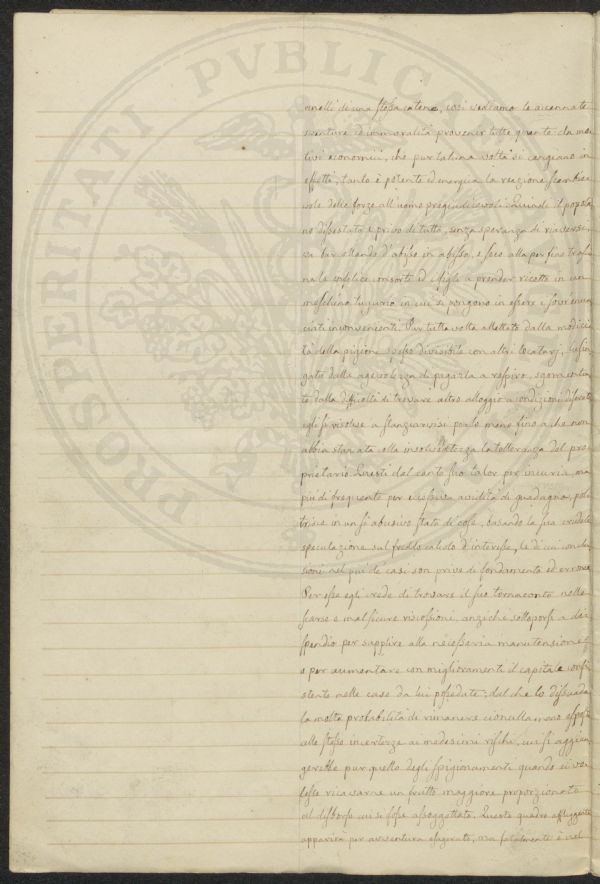 PROSPERITATI PVBLICAE
anelli di una stessa catena, così vediamo le accennate
sventure ed immoralità provenir tutte quante da mo
tivi economici, che pur talvolta si cangiano in
effetti, tanto è potente ed energica la reazione scambie
vole delle forze all'uomo pregiudicevoli. Quindi il popola
no dissestato e privo di tutto, senza speranza di riaversi,
va barcollando d'abisso in abisso, e seco alla perfine trasci
na la infelice consorte ed i figli a prender ricetto in un
meschino tugurio in cui si pongono in essere i sovr'enun
ciati inconvenienti. Pur tutta volta allettato dalla modici
tà della pigione spesso divisibile con altri locatarj, lusin
gato dalla agevolezza di pagarla a respiro, sgomenta
to dalla difficoltà di trovare altro alloggio a condizioni discrete
egli si risolve a stanziarvisi per lo meno fino a che non
abbia stancata colla insolvenza la tolleranza del pro
prietario. Questi dal canto suo talor per incuria, ma
più di frequente per eccessiva avidità di guadagno, pol
trisce in un sì abusivo stato di cose, basando la sua crudele
speculazione sul freddo calcolo d'interesse, le di cui conclu
sioni nel più de' casi son prive di fondamento ed erronee.
Per esse egli crede di trovare il suo tornaconto nelle
scarse e malsicure riscossioni, anzichè sottoporsi a di
spendio per supplire alla necessaria manutenzione,
e per aumentare con miglioramenti il capitale consi
stente nelle case da lui possedute; dal che lo dissuade
la molta probabilità di rimanere ciò nullameno esposto
alle stesse incertezze ai medesimi rischj, cui si aggiun
gerebbe pur quello degli spigionamenti quando ei vo
lesse ricavarne un frutto maggiore proporzionato
al disborso cui si fosse assoggettato. Questo quadro affliggente
apparirà per avventura esagerato, ma fatalmente è nel